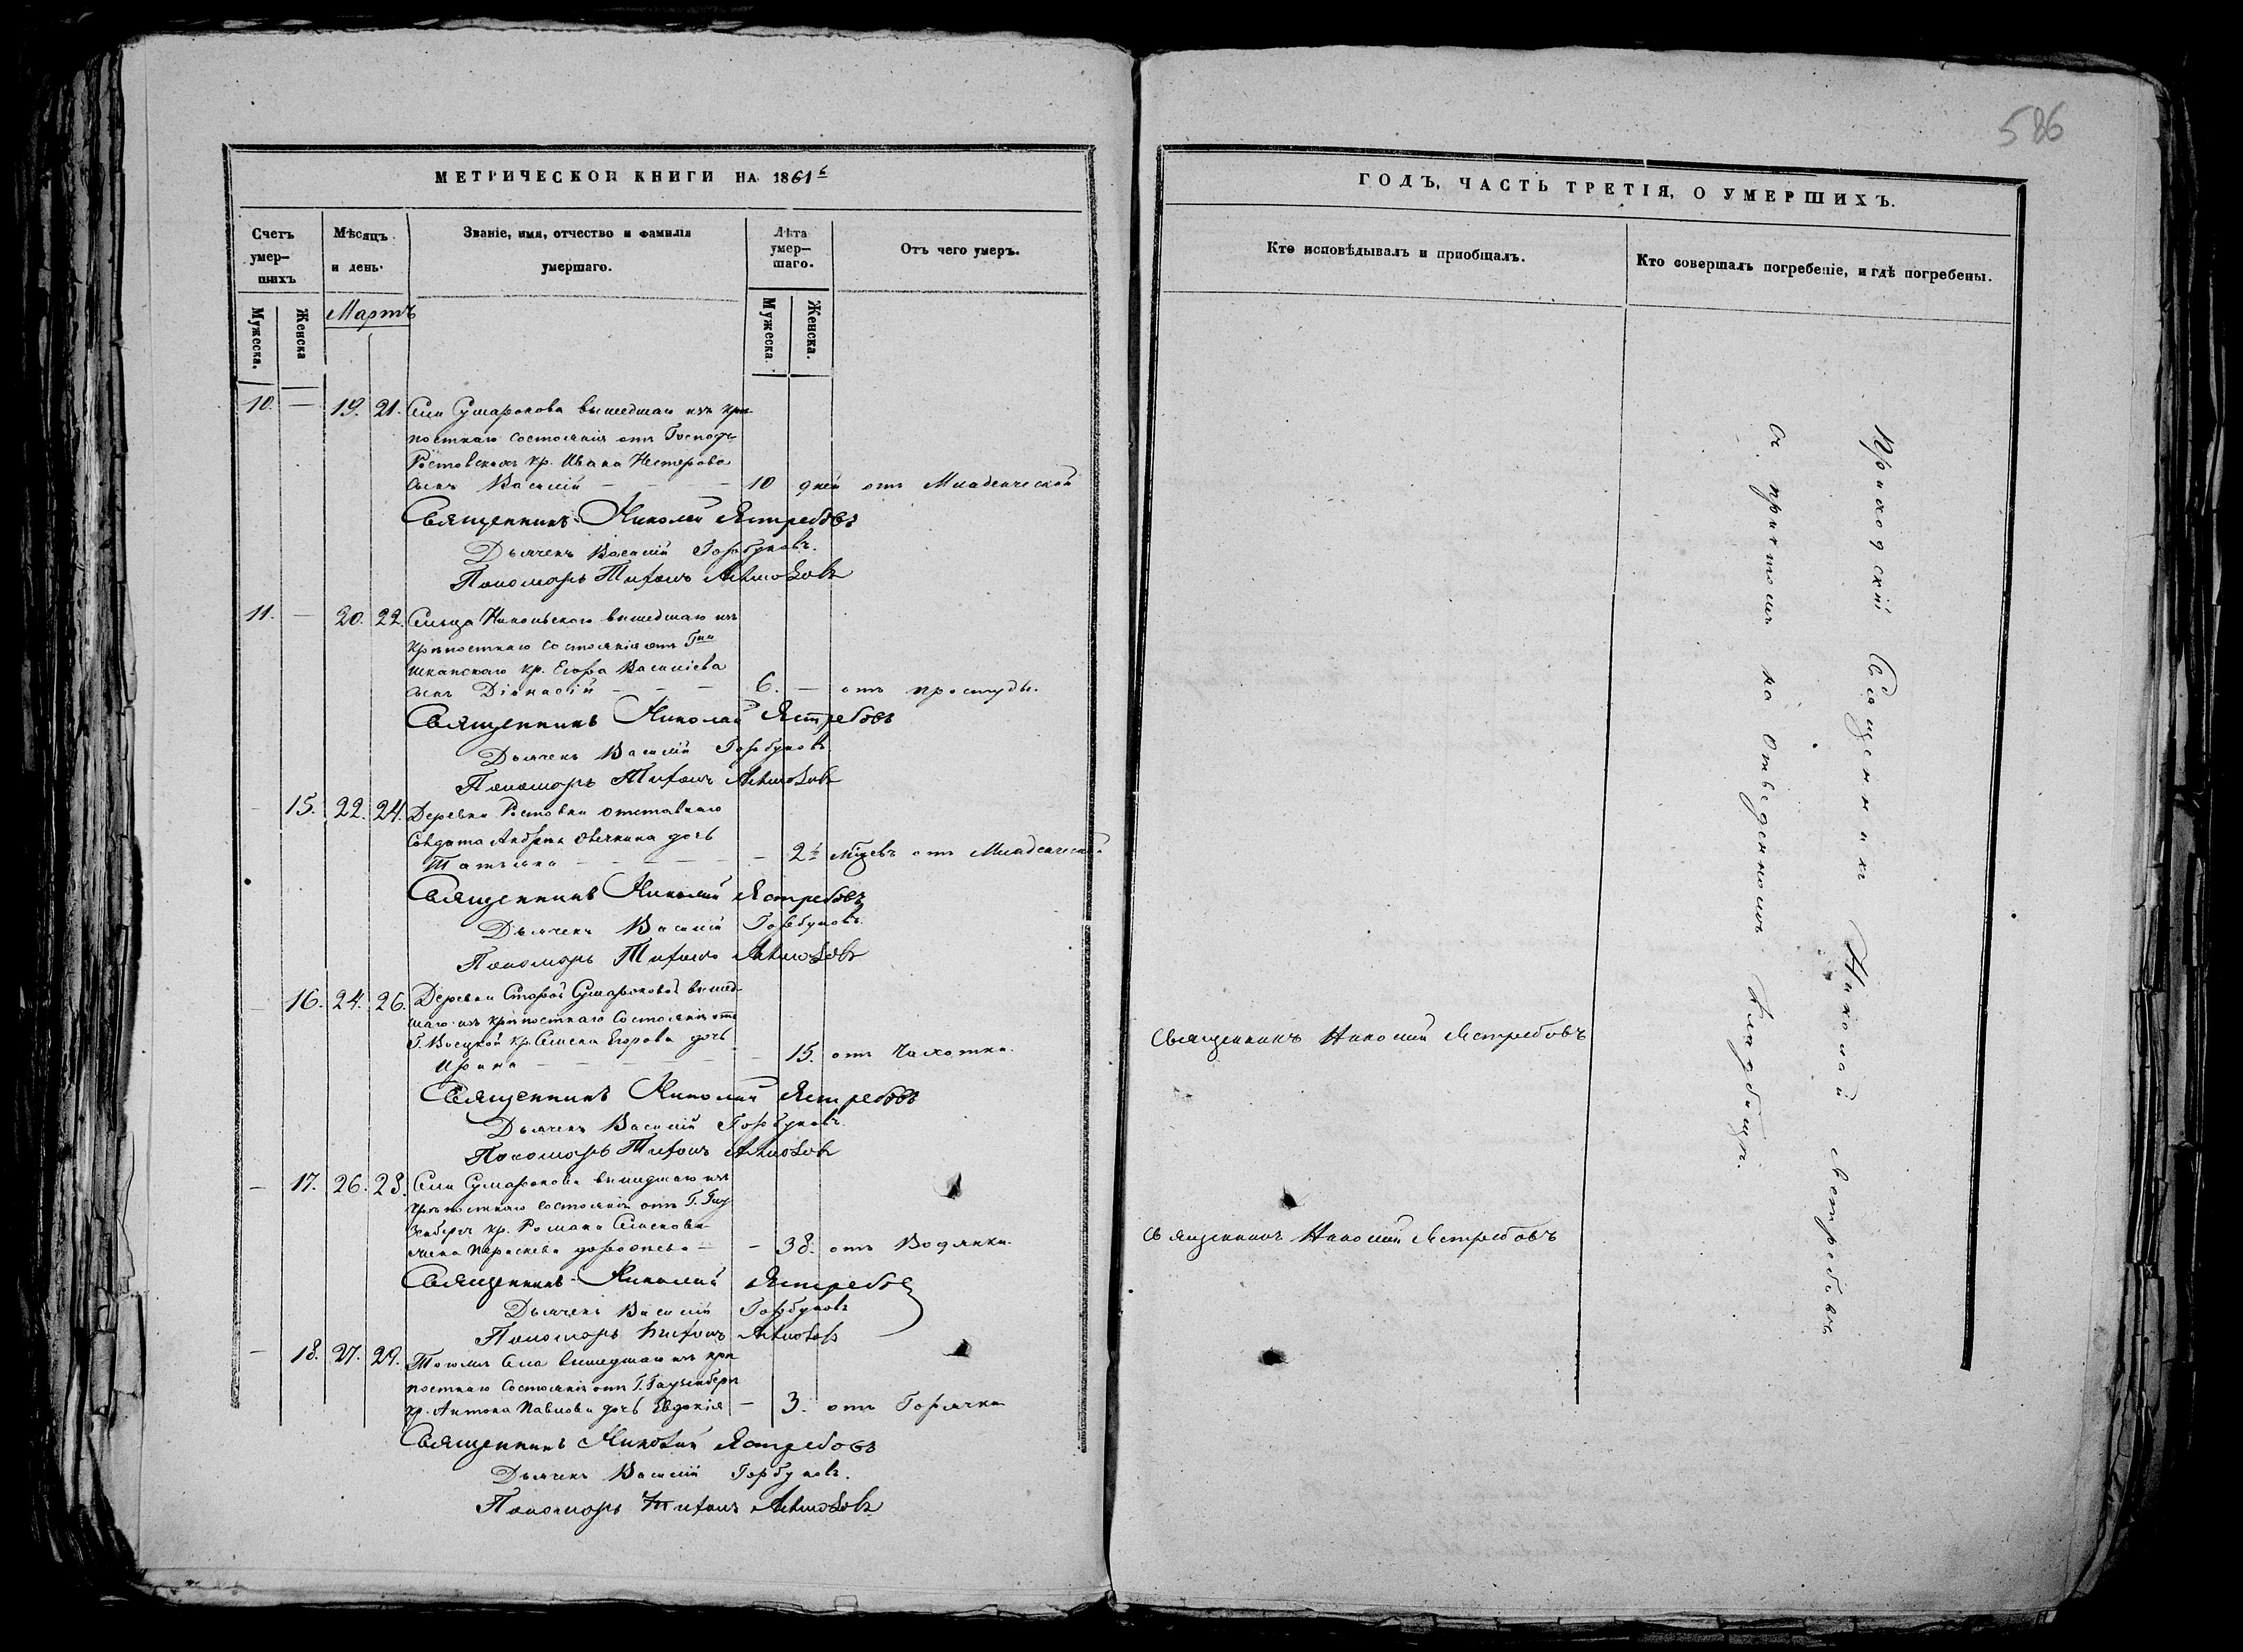 586
МЕТРИЧЕСКОЙ КНИГИ НА 1861й
ГОДЪ, ЧАСТЬ ТРЕТІЯ, О УМЕРШИХЪ.
Счетъ умер-шихъ
Мѣсяцъ и день.
Званіе, имя, отчество и фамилія умершаго.
Лѣта умер-шаго.
Отъ чего умеръ.
Кто исповѣдывалъ и приобщалъ.
Кто совершалъ погребеніе, и гдѣ погребены.
Мужеска.
Женска
Мартъ
Мужеска.
Женска.
10. — 19. 21. Села Сумарокова вышедшаго изъ крѣ-
постнаго состоянія отъ Господъ
Ростовскихъ кр. Ивана Нестерова
сынъ Василій — 10 дней отъ Младенческой
Священникъ Николай Ястребовъ
Дьячекъ Василій Горбуновъ.
Пономарь Тихонъ
11. — 20. 22. Сельца Никольскаго вышедшаго изъ
крѣпостнаго состоянія отъ Гжи
кр. Егора Василіева
сынъ Діонисій — 6. — отъ простуды.
Священникъ Николай Ястребовъ
Дьячекъ Василій Горбуновъ
Пономарь Тихонъ
— 15. 22. 24. Деревни Ростовки отставнаго
Солдата Андрея Овечкина дочь
Татьяна — 2½ мѣсяцевъ отъ Младенческой
Священникъ Николай Ястребовъ
Дьячекъ Василій Горбуновъ
Пономарь Тихонъ
— 16. 24. 26. Деревни Старой Сумароковой вышед-
шаго изъ крѣпостнаго Состоянія отъ
Г. кр. Семена Егорова дочь
Ирина — 15 отъ Чахотки.
Священникъ Николай Ястребовъ
Священникъ Николай Ястребовъ
Дьячекъ Василій Горбуновъ.
Пономарь Тихонъ
— 17. 26. 28. Села Сумарокова вышедшаго изъ
крѣпостнаго состоянія отъ Г. Гау-
зенбергъ кр. Романа Семенова
жена Параскева Дорофеева — 38. отъ Водянки.
Священникъ Николай Ястребовъ
Священникъ Николай Ястребовъ
Дьячекъ Василій Горбуновъ
Пономарь Тихонъ
— 18. 27. 29. Тогожъ Села вышедшаго изъ крѣ-
постнаго Состоянія отъ Г. Гаузенбергъ
кр. Антона Павлова дочь Евдокія — 3. отъ Горячки
Священникъ Николай Ястребовъ
Дьячекъ Василій Горбуновъ.
Пономарь Тихонъ
Приходскій Священникъ Николай Ястребовъ
съ причтомъ на Отведенномъ Кладбищѣ.